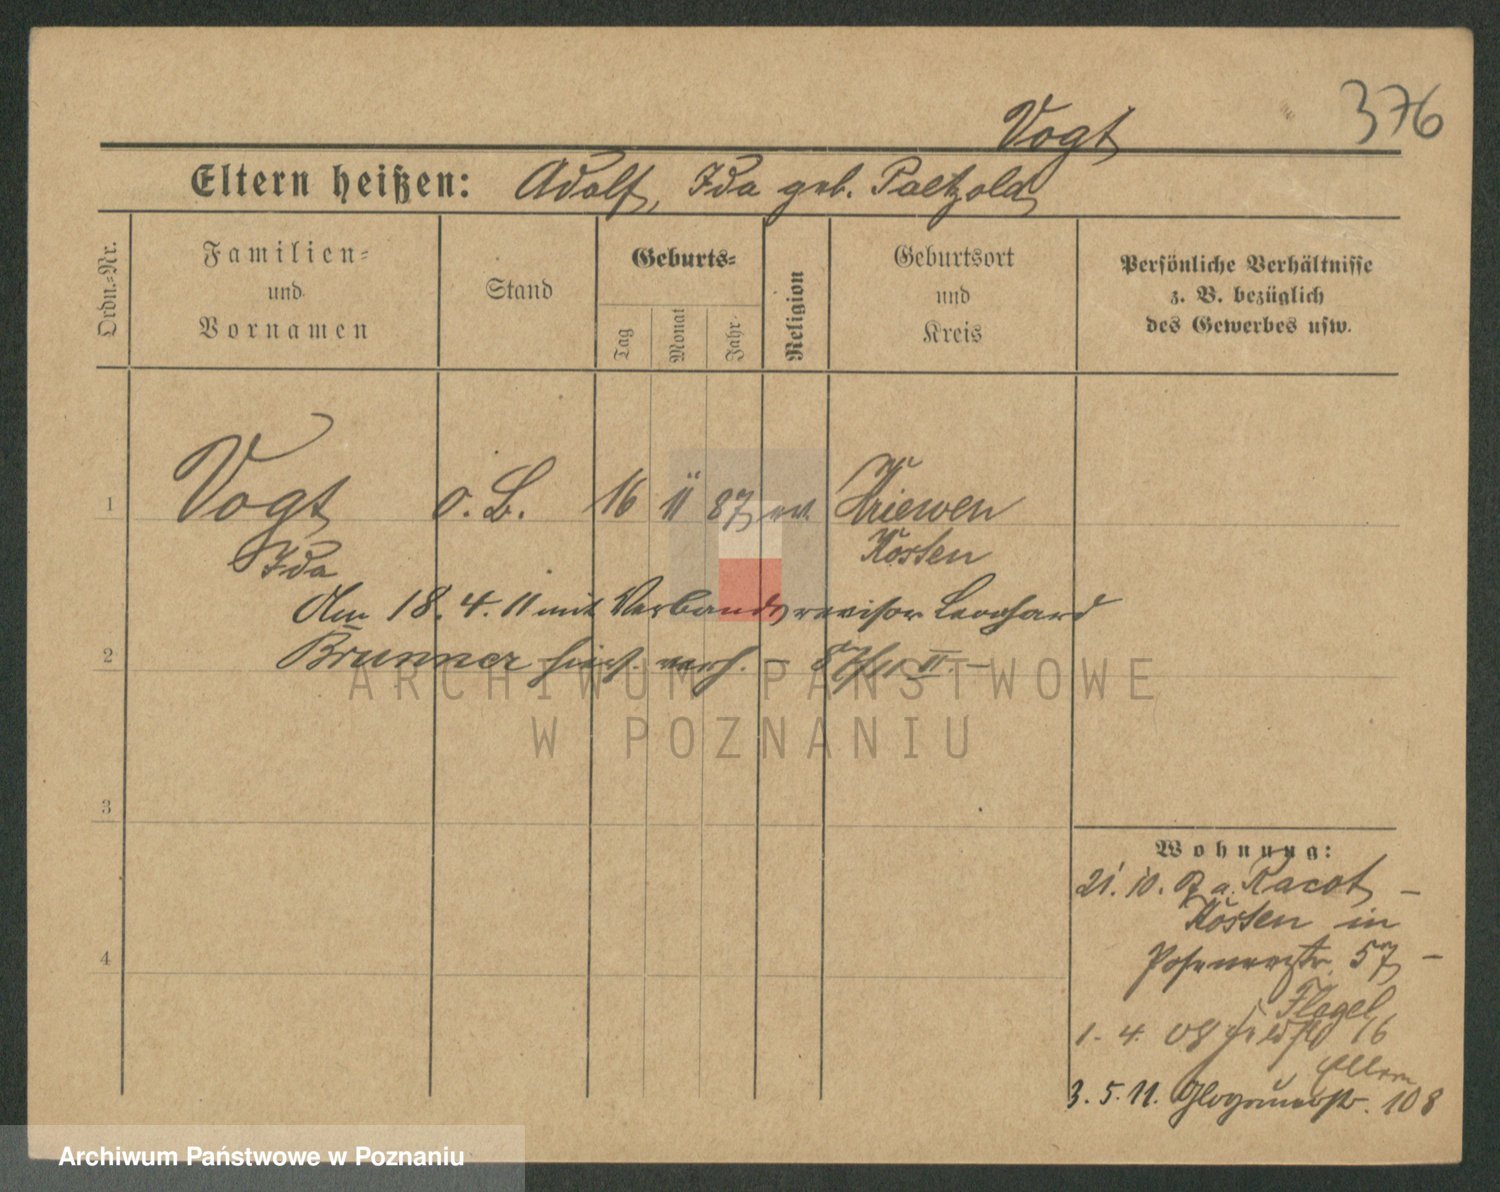 376
Vogt
Eltern heißen: Adolf, Ida geb. Paetzold
Ordn.-Nr.
Familien-
und
Vornamen
Stand
Geburts-
Tag
Monat
Jahr
Religion
Geburtsort
und
Kreis
Persönliche Verhältnisse
z. B. bezüglich
des Gewerbes usw.
1
Vogt o. B. 16 11 87 ev. Kriewen
Ida Kosten
Am 18. 4. 11 mit Verbandsrevisor Leonhard
2
Brunner hier verh. – 87/11 II. –
ARCHIWUM PAŃSTWOWE
W POZNANIU
3
4
Wohnung:
21. 10. a. Racot –
Kosten in
Posenerstr. 57 –
Flagel
1. 4. 08 16
Eltern
3. 5. 11. Glogauerstr. 108
Archiwum Państwowe w Poznaniu